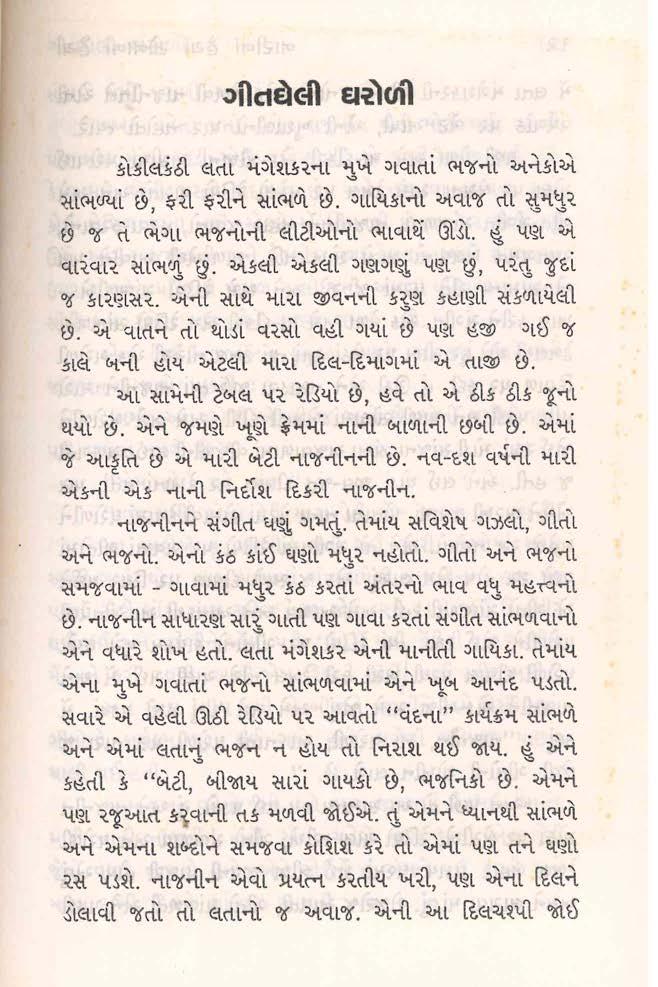 ગીતઘેલી ઘરોળી
કોકીલકંઠી લતા મંગેશકરના મુખે ગવાતાં ભજનો અનેકોએ
સાંભળ્યાં છે, ફરી ફરીને સાંભળે છે. ગાયિકાનો અવાજ તો સુમધુર
છે જ તે ભેગા ભજનોની લીટીઓનો ભાવાર્થે ઊંડો. હું પણ એ
વારંવાર સાંભળું છું. એકલી એકલી ગણગણું પણ છું, પરંતુ જુદાં
જ કારણસર. એની સાથે મારા જીવનની કરુણ કહાણી સંકળાયેલી
છે. એ વાતને તો થોડાં વરસો વહી ગયાં છે પણ હજી ગઈ જ
કાલે બની હોય એટલી મારા દિલ-દિમાગમાં એ તાજી છે.
આ સામેની ટેબલ પર રેડિયો છે, હવે તો એ ઠીક ઠીક જૂનો
થયો છે. એને જમણે ખૂણે ફ્રેમમાં નાની બાળાની છબી છે. એમાં
જે આકૃતિ છે એ મારી બેટી નાજનીનની છે. નવ-દશ વર્ષની મારી
એકની એક નાની નિર્દોશ દિકરી નાજનીન.
નાજનીનને સંગીત ઘણું ગમતું. તેમાંય સવિશેષ ગઝલો, ગીતો
અને ભજનો. એનો કંઠ કાંઈ ઘણો મધુર નહોતો. ગીતો અને ભજનો
સમજવામાં - ગાવામાં મધુર કંઠ કરતાં અંતરનો ભાવ વધુ મહત્ત્વનો
છે. નાજનીન સાધારણ સારું ગાતી પણ ગાવા કરતાં સંગીત સાંભળવાનો
એને વધારે શોખ હતો. લતા મંગેશકર એની માનીતી ગાયિકા. તેમાંય
એના મુખે ગવાતાં ભજનો સાંભળવામાં એને ખૂબ આનંદ પડતો.
સવારે એ વહેલી ઊઠી રેડિયો પર આવતો “વંદના” કાર્યક્રમ સાંભળે
અને એમાં લતાનું ભજન ન હોય તો નિરાશ થઈ જાય. હું એને
કહેતી કે “બેટી, બીજાય સારાં ગાયકો છે, ભજનિકો છે. એમને
પણ રજૂઆત કરવાની તક મળવી જોઈએ. તું એમને ધ્યાનથી સાંભળે
અને એમના શબ્દોને સમજવા કોશિશ કરે તો એમાં પણ તને ઘણો
રસ પડશે. નાજનીન એવો પ્રયત્ન કરતીય ખરી, પણ એના દિલને
ડોલાવી જતો તો લતાનો જ અવાજ. એની આ દિલચશ્પી જોઈ